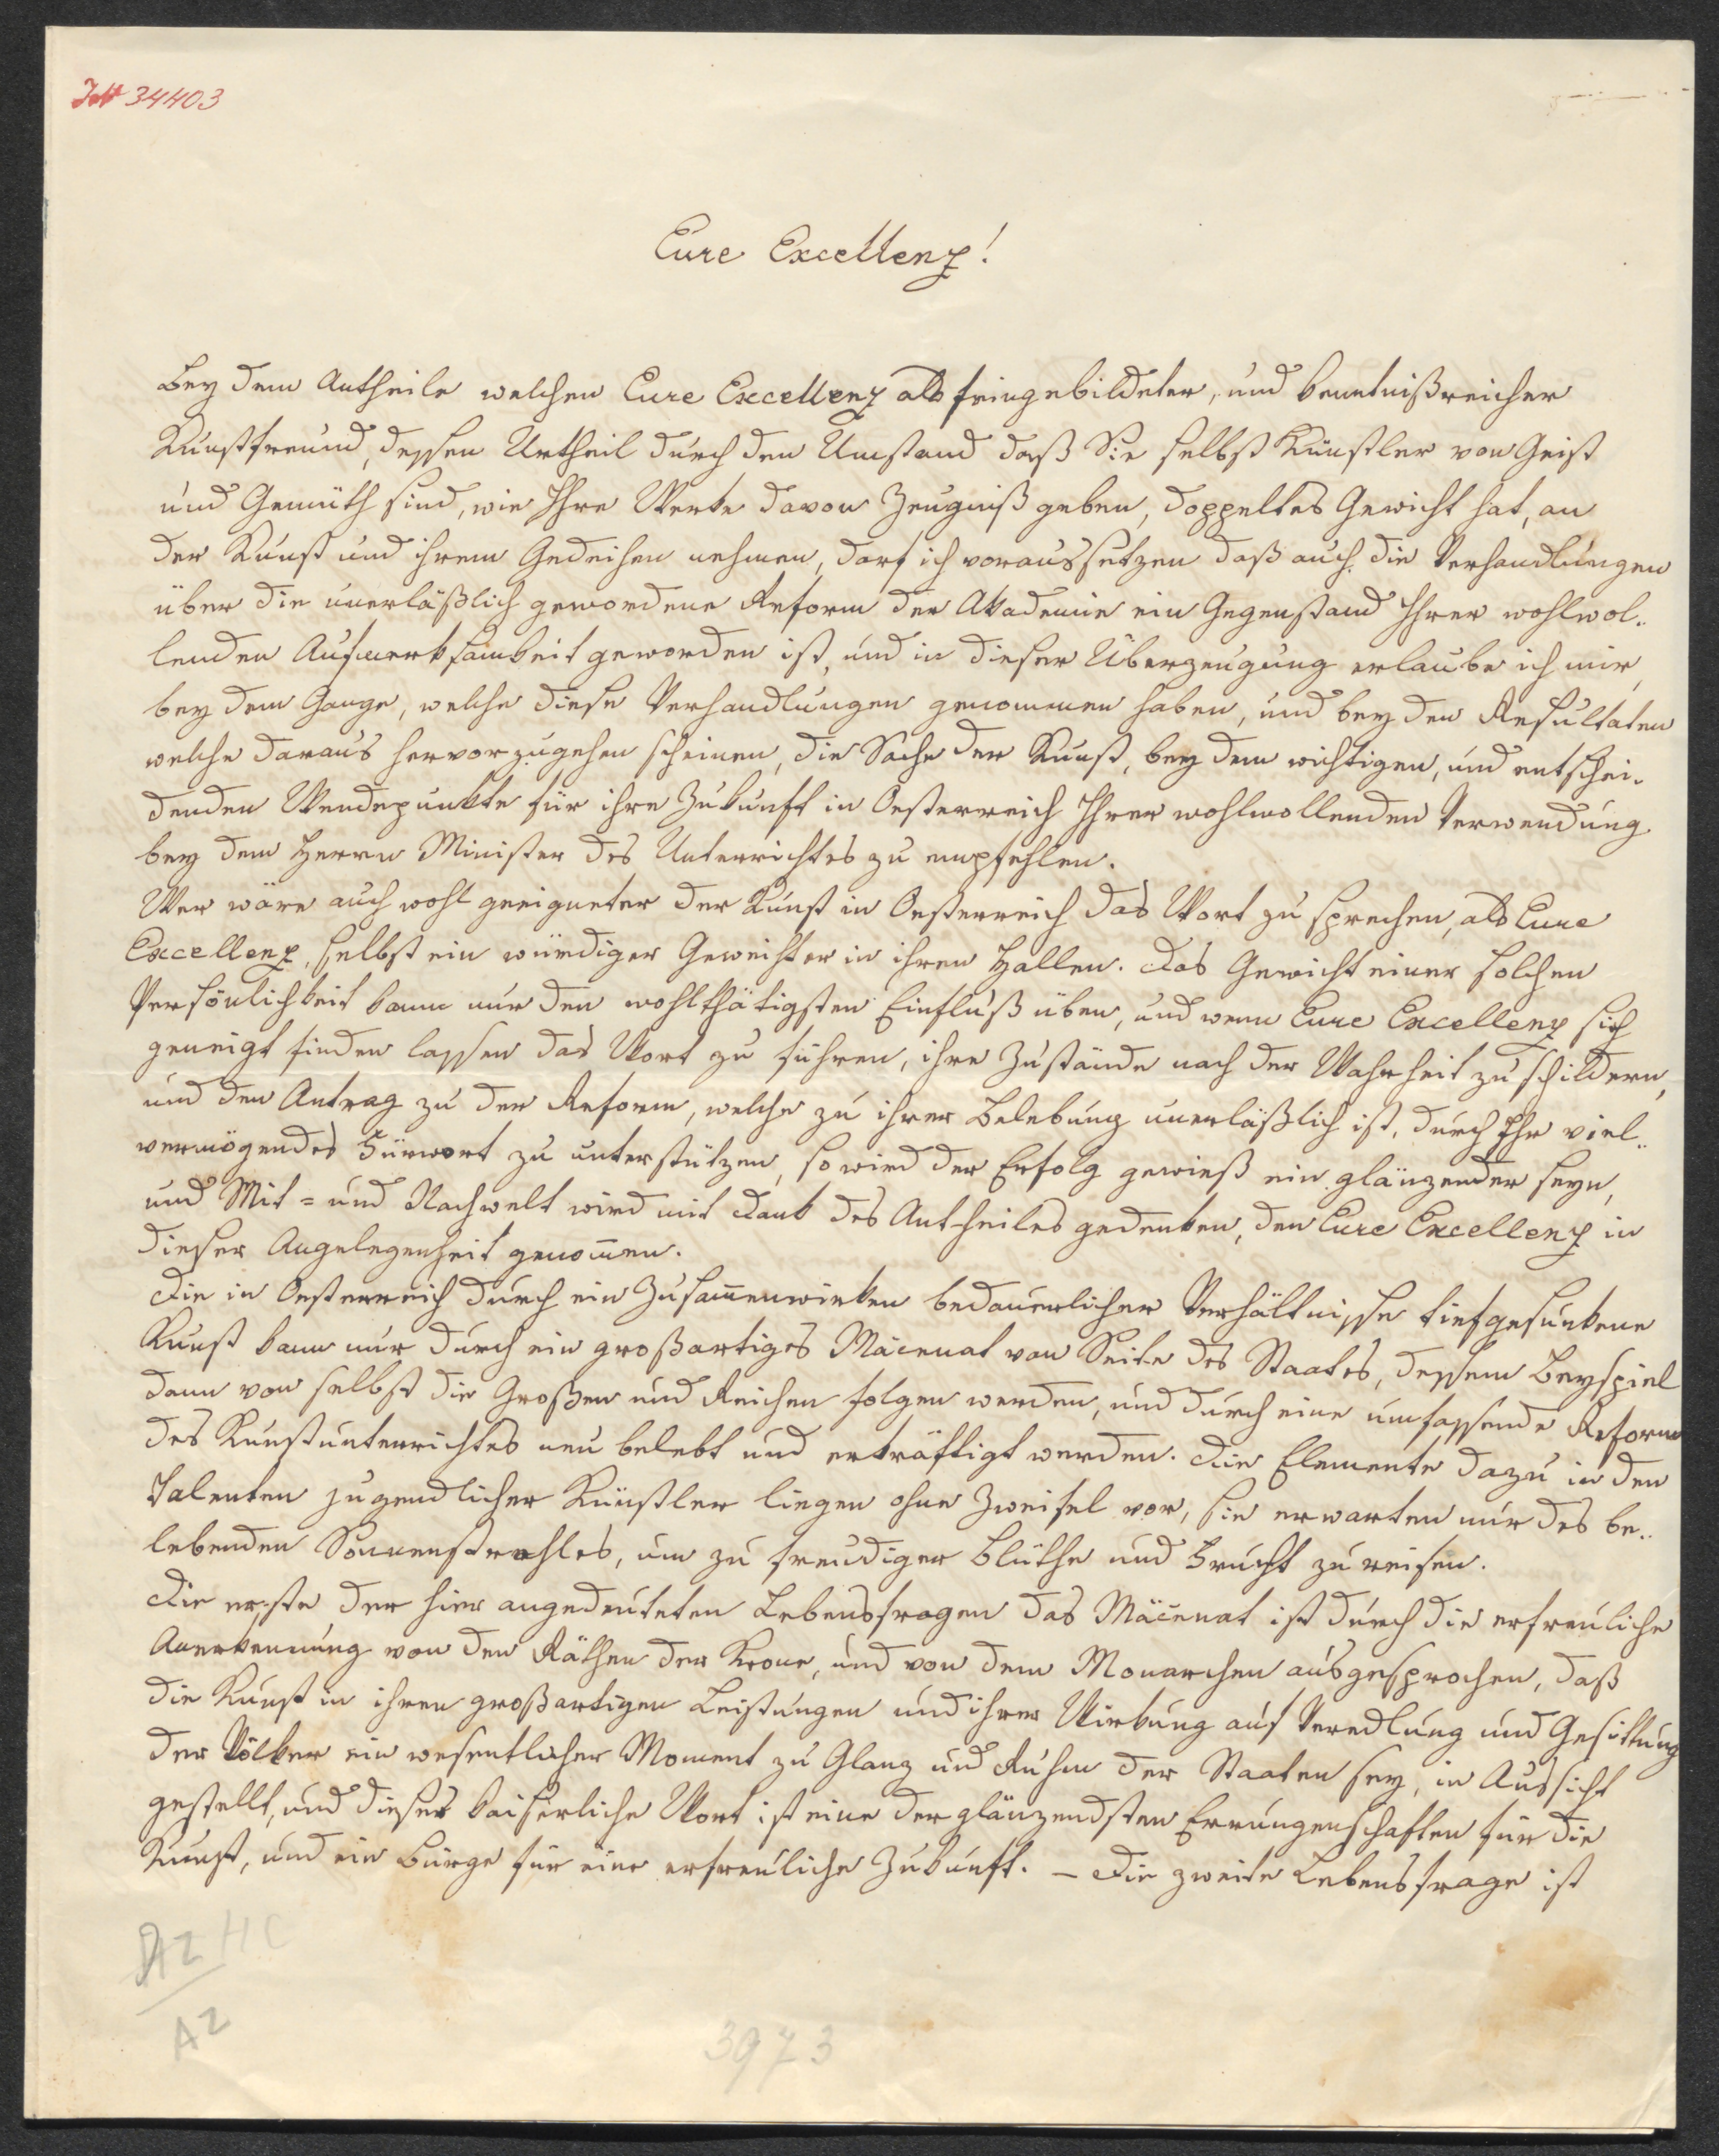 34403
Eure Excellenz!
Bey dem Antheile welchen Eure Excellenz als feingebildeter, und kenntnißreicher
Kunstfreund, dessen Urtheil durch den Umstand daß Sie selbst Künstler von Geist
und Gemüth sind, wie Ihre Werke davon Zeugniß geben, doppeltes Gewicht hat, an
der Kunst und ihrem Gedeihen nehmen, darf ich voraussetzen daß auch die Verhandlungen
über die unerläßlich gewordene Reform der Akademie ein Gegenstand Ihrer wohlwol-
lenden Aufmerksamkeit geworden ist, und in dieser Überzeugung erlaube ich mir,
bey dem Gange, welche diese Verhandlungen genommen haben, und bey den Resultaten
welche daraus hervorzugehen scheinen, die Sache der Kunst, bey dem wichtigen, und entschei-
denden Wendepunkte für ihre Zukunft in Oesterreich Ihrer wohlwollenden Verwendung
bey dem Herrn Minister des Unterrichtes zu empfehlen.
Wer wäre auch wohl geeigneter der Kunst in Oesterreich das Wort zu sprechen, als Eure
Excellenz, selbst ein würdiger Geweihter in ihren Hallen. Das Gewicht einer solchen
Persönlichkeit kann nur den wohlthätigsten Einfluß üben, und wenn Eure Excellenz sich
geneigt finden lassen das Wort zu führen, ihre Zustände nach der Wahrheit zu schildern,
und den Antrag zu der Reform, welche zu ihrer Belebung unerläßlich ist, durch Ihr viel-
vermögendes Fürwort zu unterstützen, so wird der Erfolg gewiß ein glänzender seyn,
und Mit= und Nachwelt wird mit Dank des Antheiles gedenken, den Eure Excellenz in
dieser Angelegenheit genom̅en.
Die in Oesterreich durch ein Zusam̅enwirken bedauerlicher Verhältnisse tiefgesunkene
Kunst kann nur durch ein großartiges Mäcenat von Seite des Staates, dessem Beyspiel
dann von selbst die Großen und Reichen folgen werden, und durch eine umfassende Reform
des Kunstunterrichtes neu belebt und erkräftigt werden. Die Elemente dazu in den
Talenten jugendlicher Künstler liegen ohne Zweifel vor, sie erwarten nur des be-
lebenden Sonnenstrahles, um zu freudiger Blüthe und Frucht zu reifen.
Die erste der hier angedeuteten Lebensfragen das Mäcenat ist durch die erfreuliche
Anerkennung von den Räthen der Krone, und von dem Monarchen ausgesprochen, daß
die Kunst in ihren großartigen Leistungen und ihrer Wirkung auf Veredlung und Gesittung
der Völker ein wesentlicher Moment zu Glanz und Ruhm der Staaten sey, in Aussicht
gestellt, und dieses kaiserliche Wort ist eine der glänzendsten Errungenschaften für die
Kunst, und ein Bürge für eine erfreuliche Zukunft. – Die zweite Lebensfrage ist
HC
A2
3973